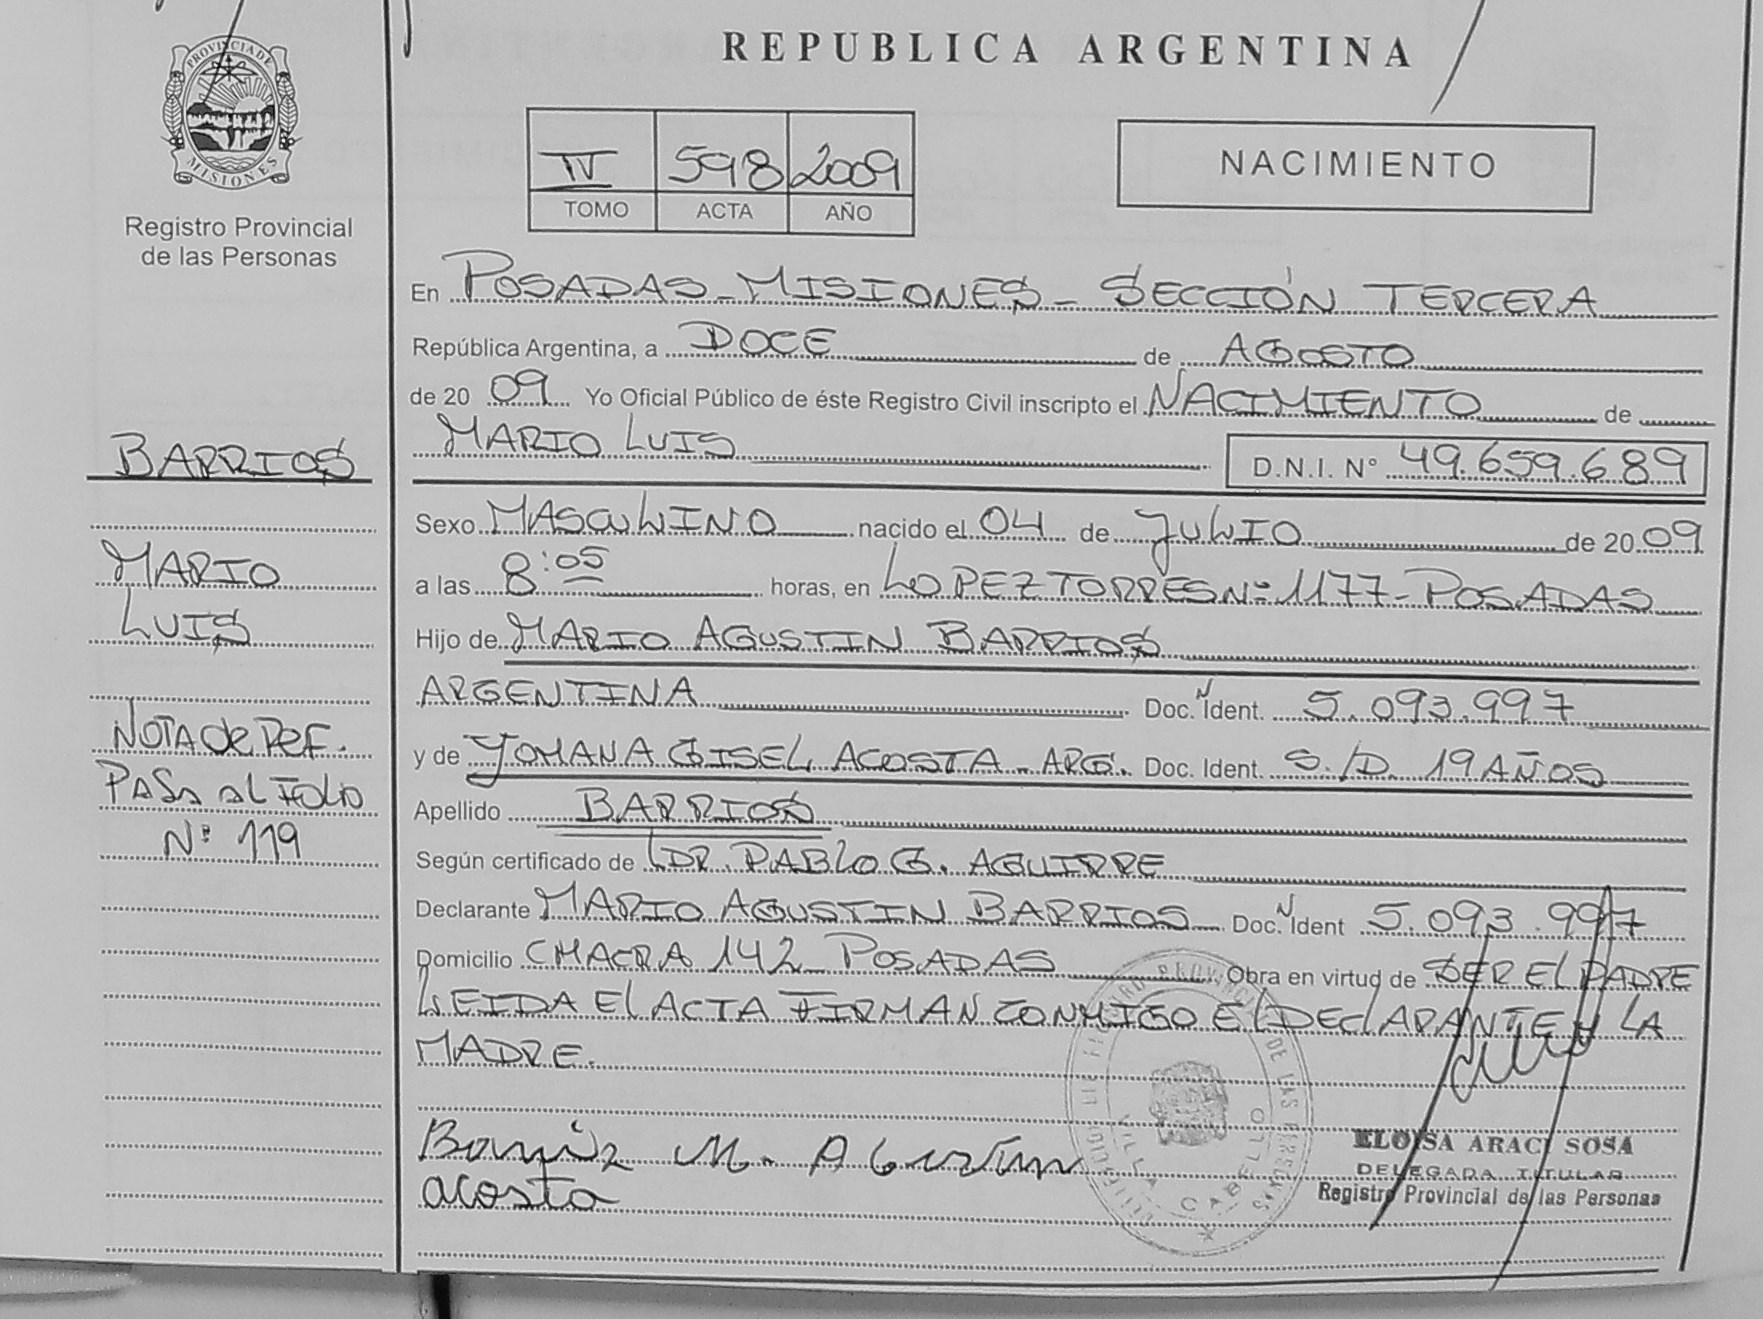 PROVINCIA DE
MISIONES
Registro Provincial
de las Personas
BARRIOS
MARIO
LUIS
NOTA de REF.
PASA al FOLIO
Nº 119
REPUBLICA ARGENTINA
IV 598 2009
TOMO ACTA AÑO
NACIMIENTO
En POSADAS - MISIONES - SECCIÓN TERCERA
República Argentina, a DOCE de AGOSTO
de 20 09 Yo Oficial Público de éste Registro Civil inscripto el NACIMIENTO de
MARIO LUIS D.N.I. N° 49.659.689
Sexo MASCULINO nacido el 04 de JULIO de 20 09
a las 8:05 horas, en LOPEZ TORRES Nº 1177 - POSADAS
Hijo de MARIO AGUSTIN BARRIOS
ARGENTINA Doc. N Ident. 5.093.997
y de YOHANA GISEL ACOSTA - ARG. Doc. Ident. S./D. 19 AÑOS
Apellido BARRIOS
Según certificado de DR. PABLO G. AGUIRRE
Declarante MARIO AGUSTIN BARRIOS Doc. N Ident 5.093.997
Domicilio CHACRA 142 POSADAS Obra en virtud de SER EL PADRE
LEIDA El ACTA FIRMAN CONMIGO El DEClARANTE y LA
MADRE.
M. Agustin
acosta
VILLA CABELLO
ELOISA ARACI SOSA
DELEGADA TITULAR
Registro Provincial de las Personas